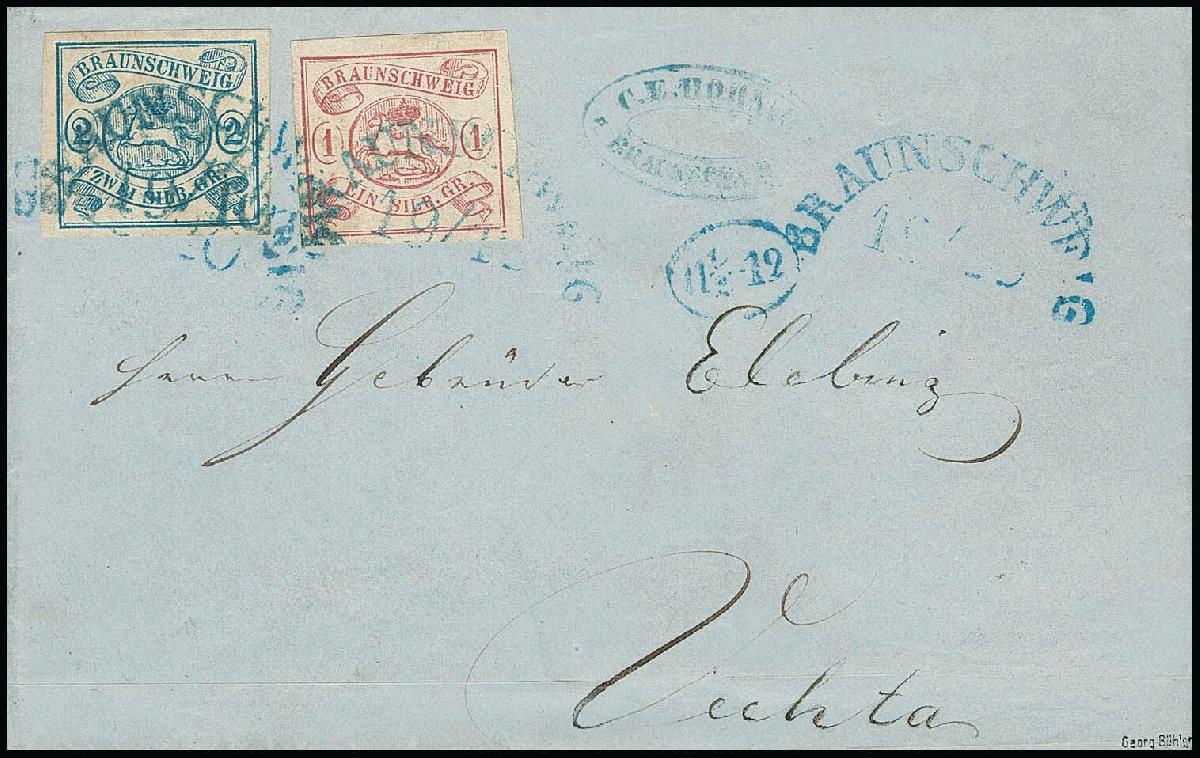 BRAUNSCHWEIG
2 2
ZWEI SILB. GR.
BRAUNSCHWEIG
1 1
EIN SILB. GR.
C. E.
BRAUNSCHWEIG
11½-12
Herren Gebrüder
Vechta
Georg Bühler